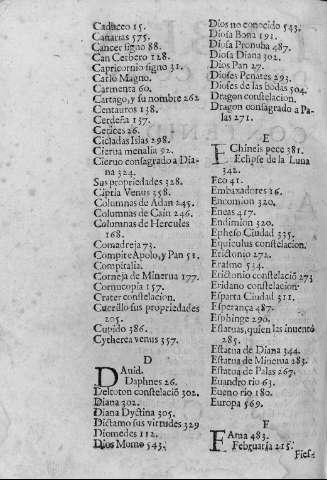 Caduceo 15.
Canarias 575.
Cancer signo 88.
Can Cerbero 128.
Capricornio signo 31.
Carlo Magno.
Carmenta 60.
Cartago, y su nombre 262
Centauros 138.
Cerdeña 157.
Cerices 26.
Cicladas Islas 298.
Cierua menalia 92.
Cieruo consagrado a Dia-
na 324.
Sus propriedades 328.
Cipria Venus 358.
Columnas de Adan 245.
Columnas de Cain 246.
Columnas de Hercules
168.
Comadreja 73.
Compite Apolo, y Pan 51.
Compitalia.
Corneja de Minerua 177.
Cornucopia 157.
Crater constelacion.
Cuerillo sus propriedades
205.
Cupido 386.
Cytherea venus 357.
D
DAuid.
Daphnes 26.
Deltoton constelaciõ 302.
Diana 302.
Diana Dyctina 305.
Dictamo sus virtudes 329
Diomedes 112.
Dios Momo 543.
Dios no conocido 543.
Diosa Bona 191.
Diosa Pronuba 487.
Diosa Diana 302.
Dios Pan 27.
Dioses Penates 293.
Dioses de las bodas 504.
Dragon constelacion.
Dragon consagrado a Pa-
las 271.
E
EChineis pece 381.
Eclipse de la Luna
342.
Eco 41.
Embaxadores 26.
Encomion 320.
Eneas 417.
Endimion 320.
Epheso Ciudad 335.
Equiculus constelacion.
Erictonio 272.
Erasmo 534.
Erictonio constelaciõ 273
Eridano constelacion.
Esparta Ciudad 311.
Esperança 487.
Esphinge 290.
Estatuas, quien las inuentó
285.
Estatua de Diana 344.
Estatua de Minerua 283.
Estatua de Palas 267.
Euandro rio 63.
Eueno rio 180.
Europa 569.
F
FAma 483.
Februaria 215.
Fies-